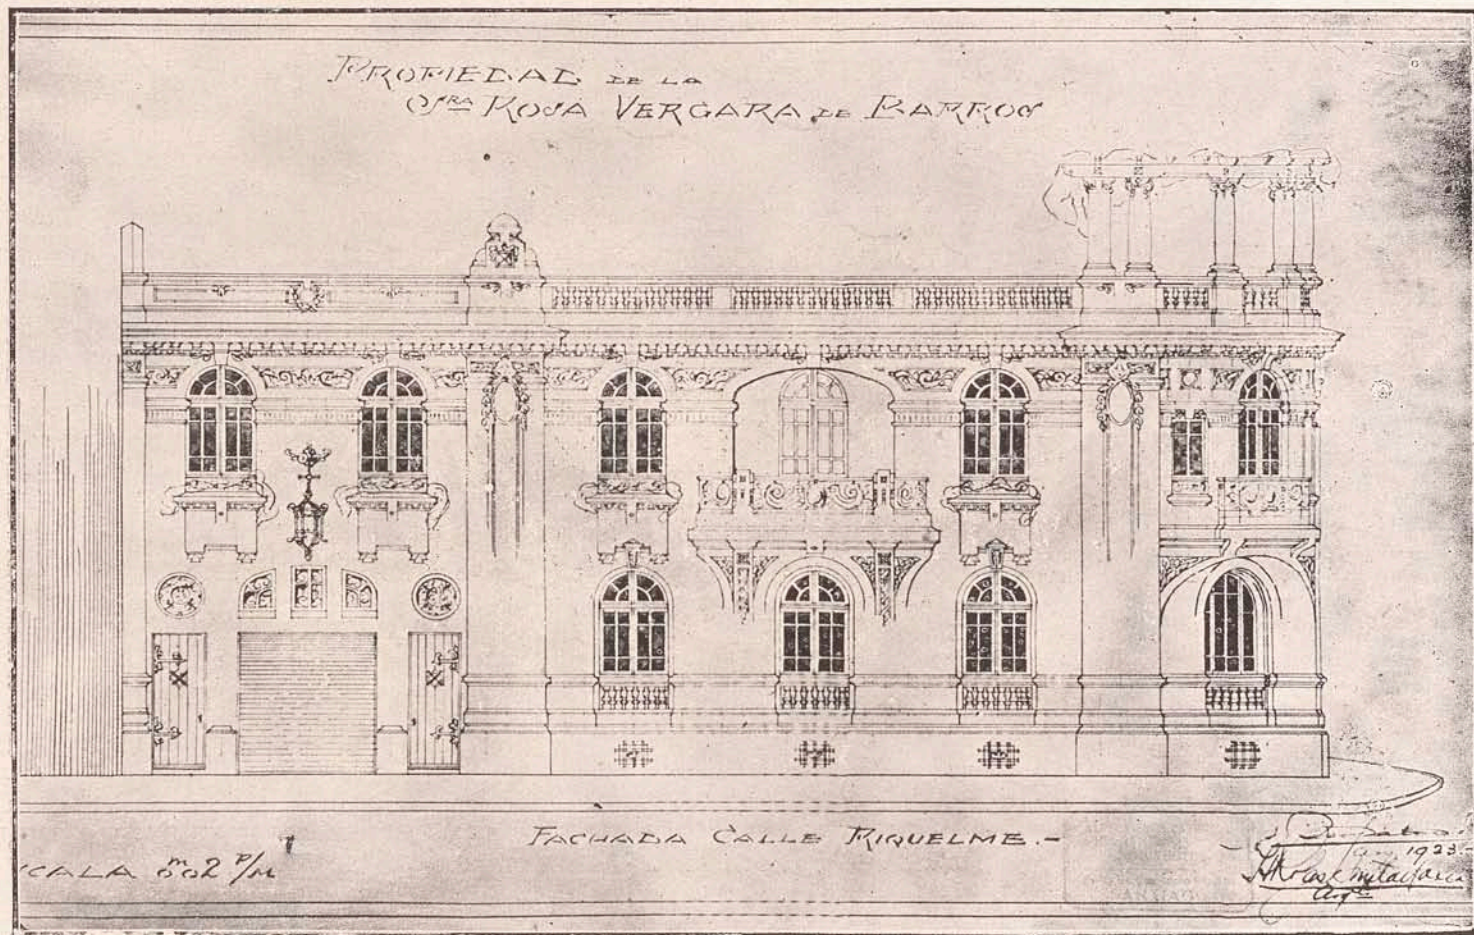 PROPIEDAD DE LA
SRA ROSA VERGARA DE BARROS
FACHADA CALLE RIQUELME.-
ESCALA 0m02 P/M
1923.-
Arqto